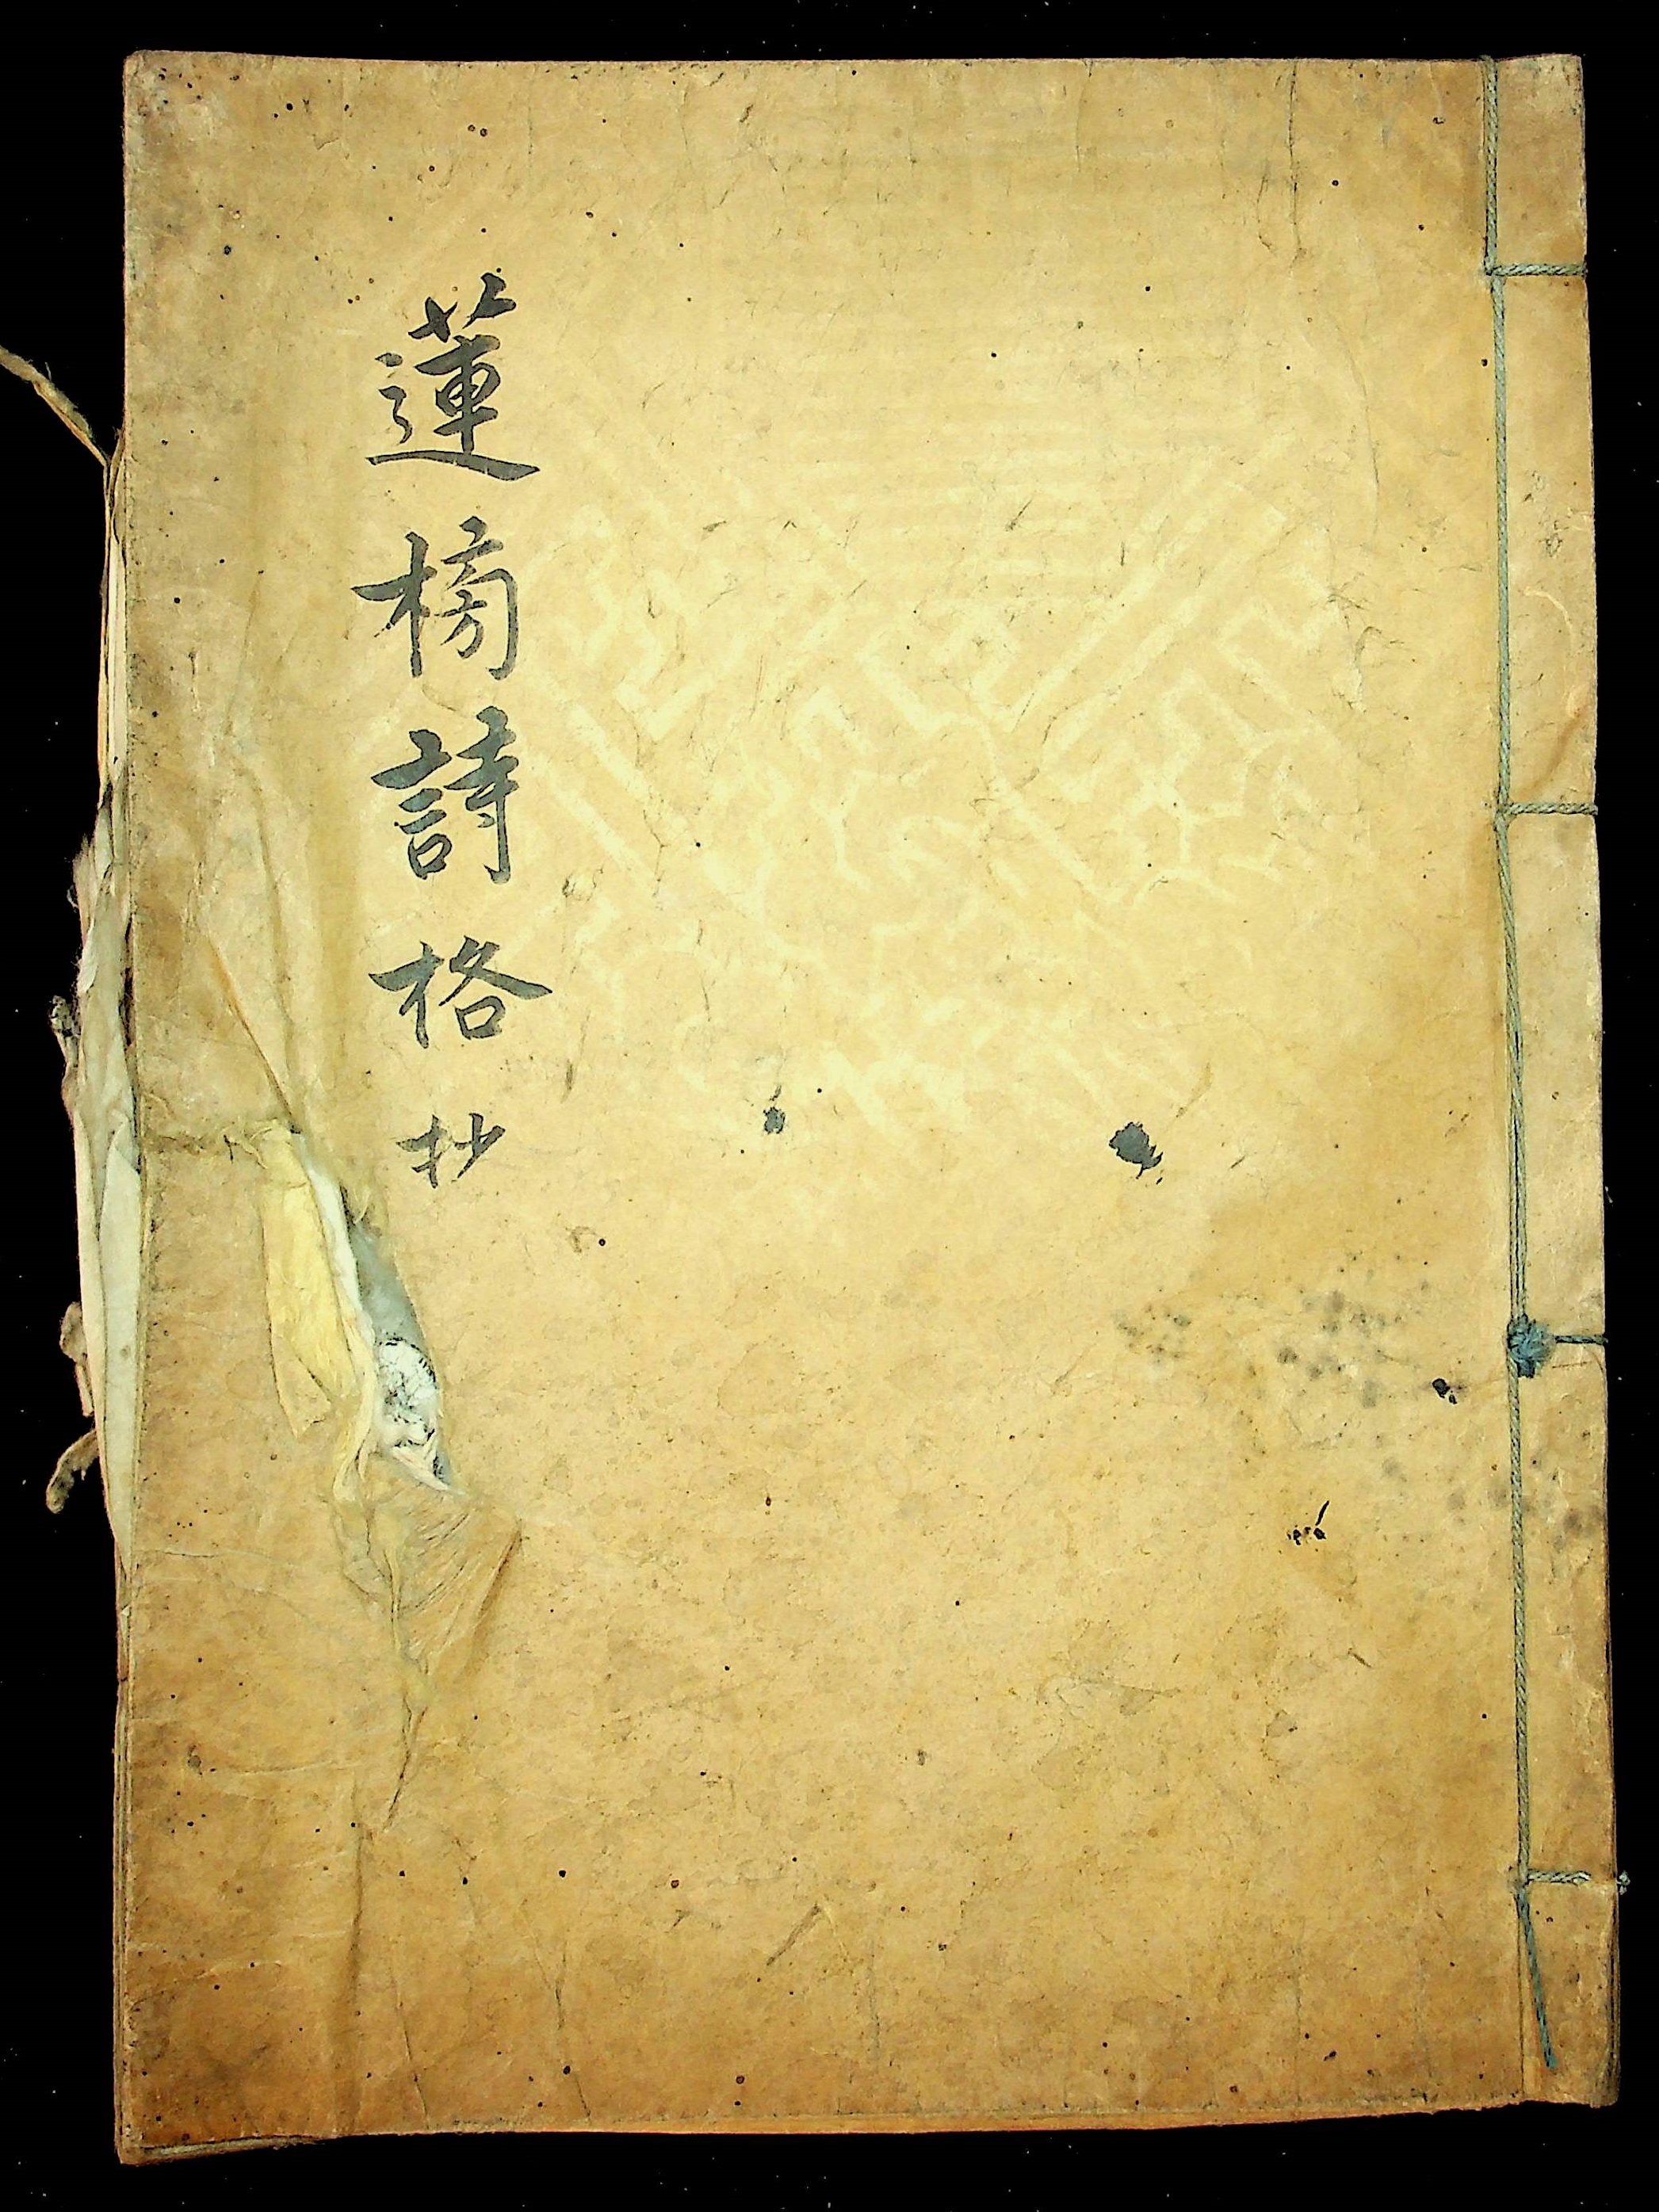 蓮榜詩格抄